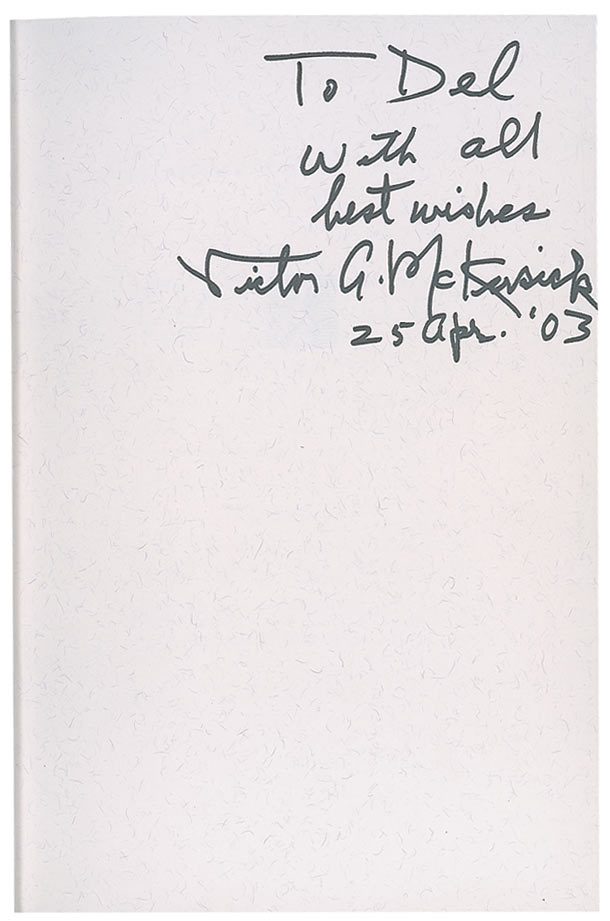 To Del
with all
best wishes
Victor A. McKusick
25 Apr. '03